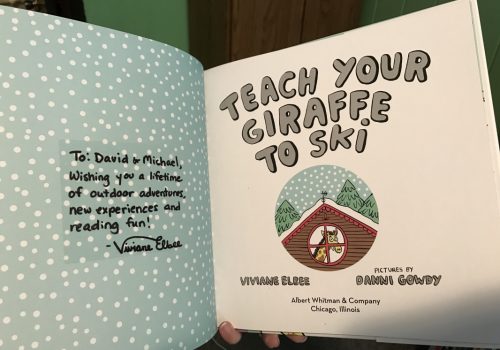 To: David & Michael,
Wishing you a lifetime
of outdoor adventures,
new experiences and
reading fun!
- Viviane Elbee
TEACH YOUR
GIRAFFE
TO SKi
VIVIANE ELBEE
PICTURES BY
DANNI GOWDY
Albert Whitman & Company
Chicago, Illinois